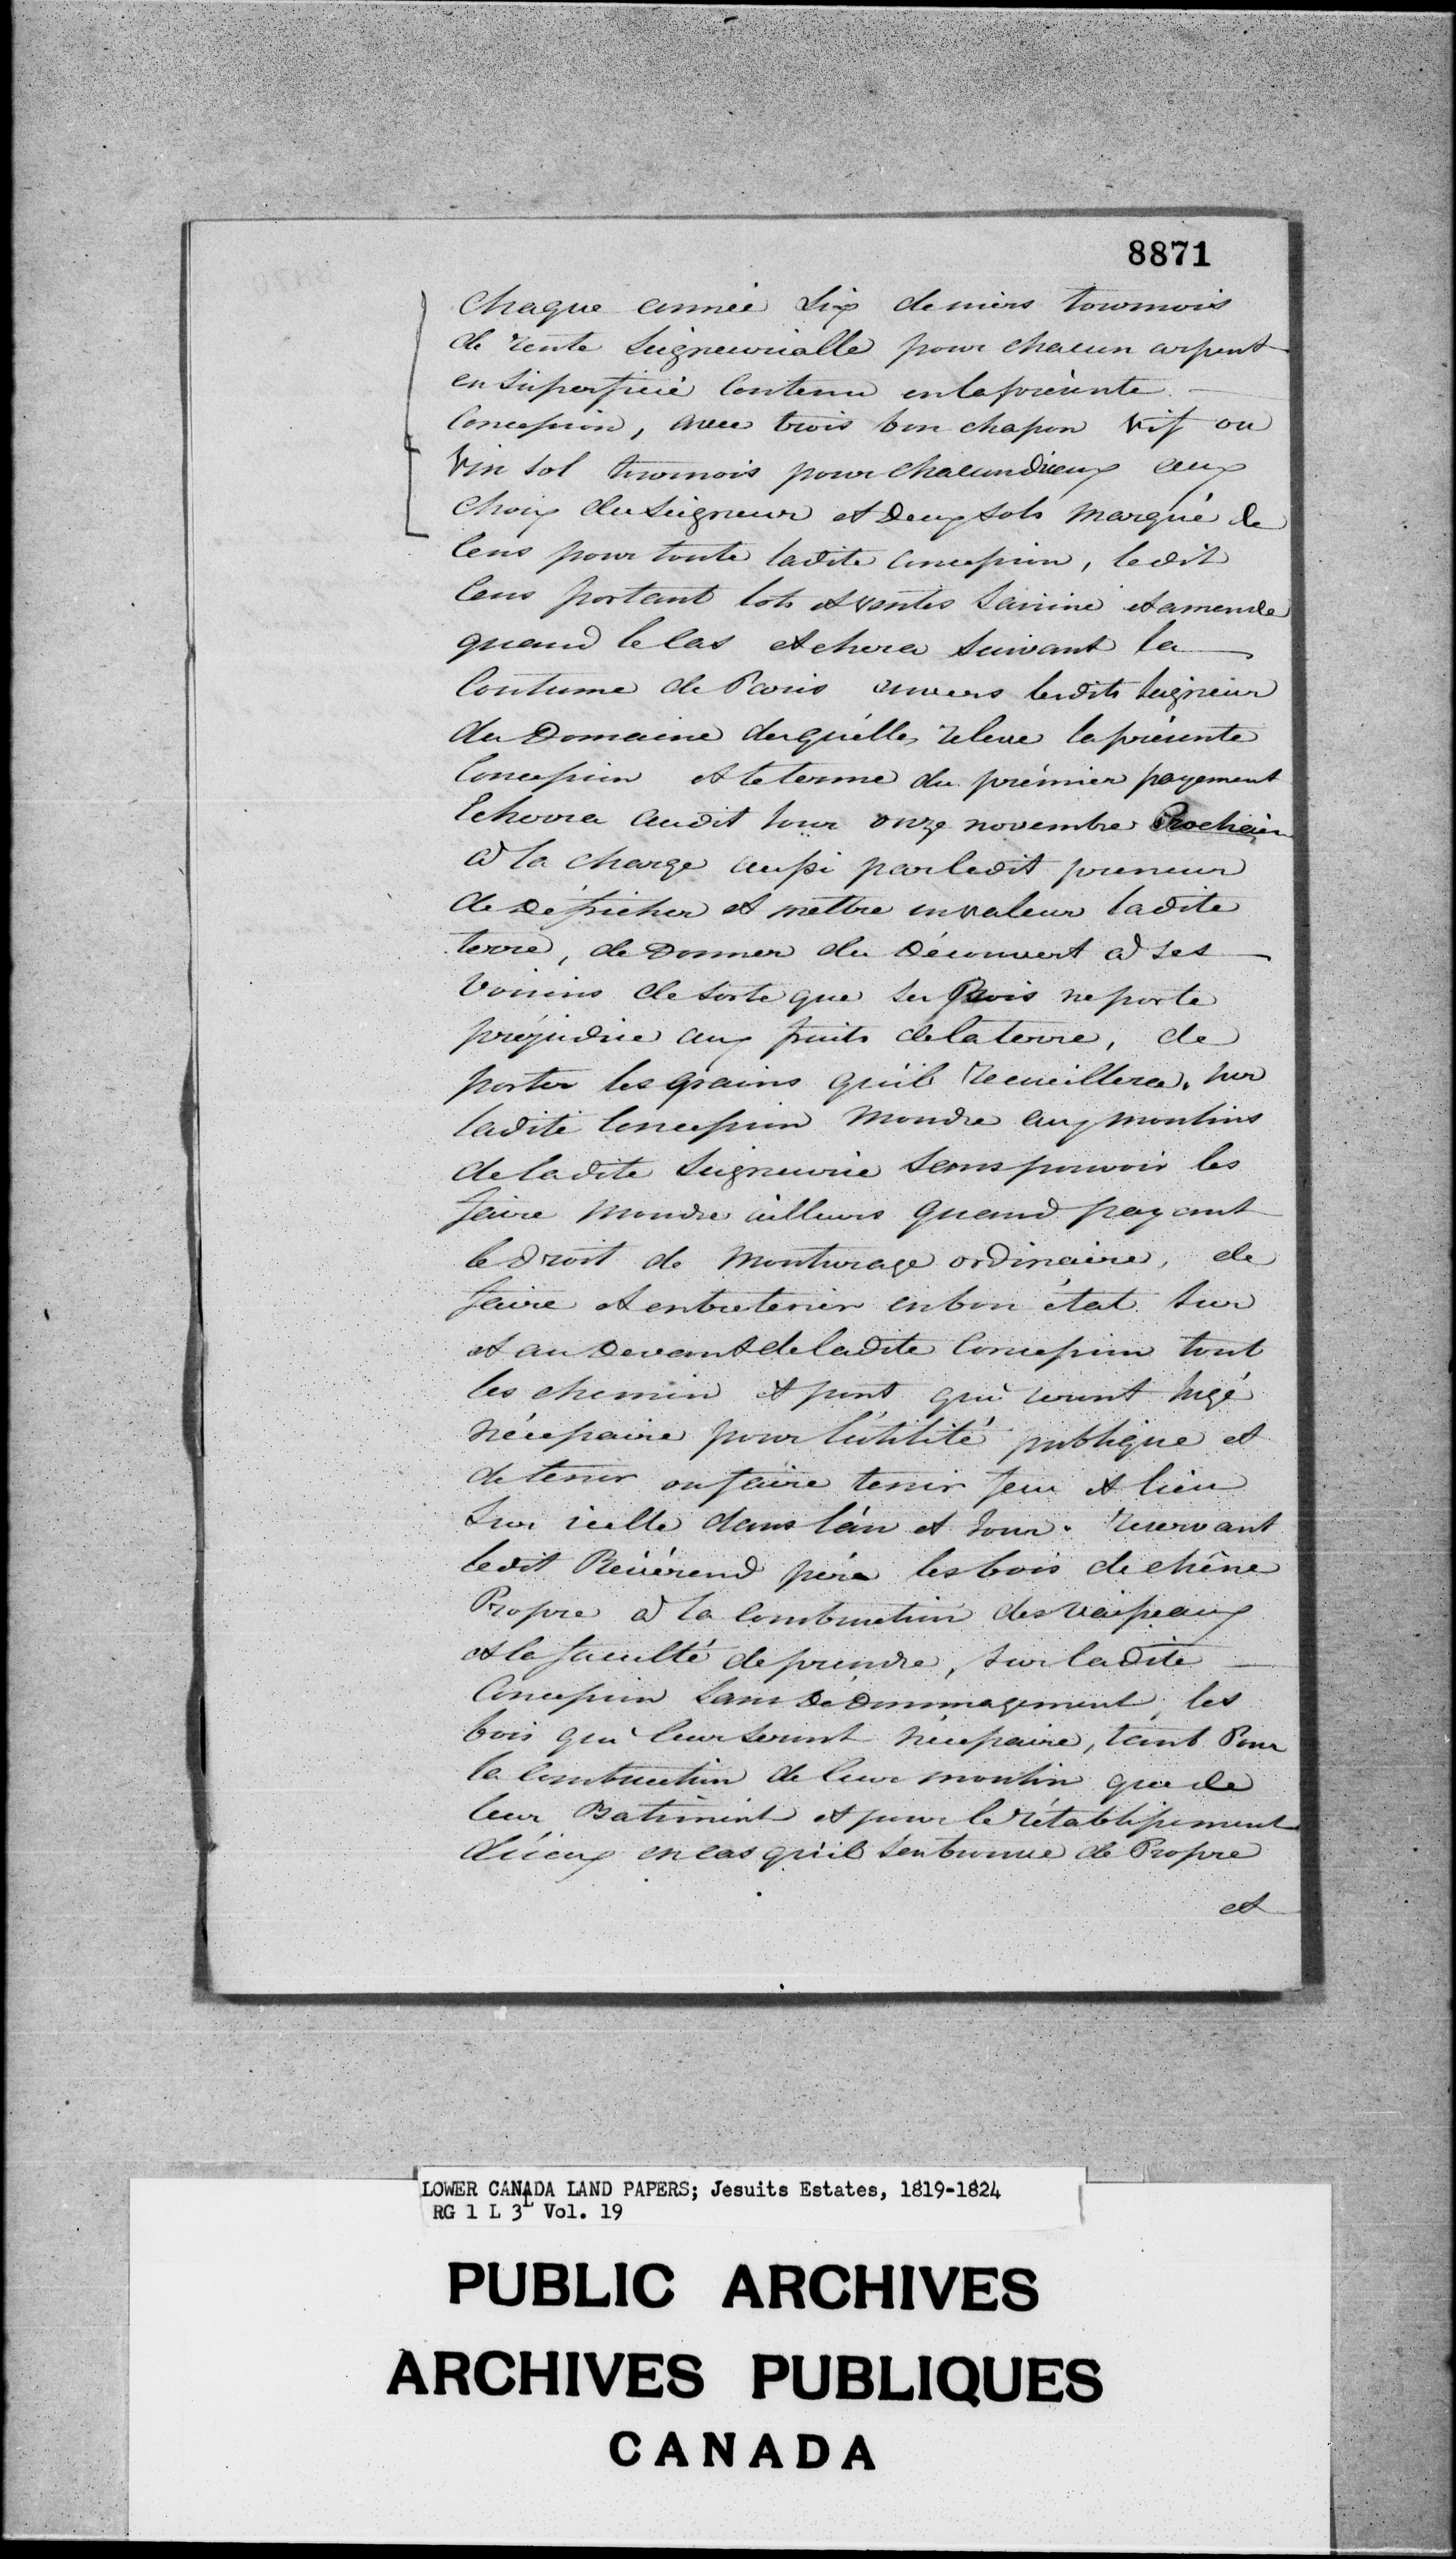 8871
Chaque année Six deniers tournois
de rente Seigneurialle pour chacun arpent
en Superficié Contenu en la présente
Concession, avec trois bon chapon vif ou
Vin sol tournois pour chacun d'ieux aux
Choix du Seigneur et Deux sols marqué de
Cens pour toute ladite concession, ledit
Cens portant lots et ventes Saisine et amende
quand le Cas echera suivant la
Coutume de Paris envers lesdits Seigneur
du Domaine du quélle releve la présente
Concession et le terme du prémier payement
Echoira audit Jour onze novembre Prochain
à la charge aussi par ledit preneur
de Défricher et mettre en valeur ladite
terre, de Donner du Découvert à ses
Voisins de sorte que ses Bois ne porte
préjudice aux fruits de la terre, de
porter les grains qu'il recueillera sur
ladite Concession Moudre aux moulins
de ladite Seigneurie Sans pouvoir les
faire moudre ailleurs quand payant
le Droit de Mouturage ordinaire, de
faire et entretenir en bon état sur
et au Devant de ladite Concession tout
les chemin et pont qui seront Jugé
nécessaire pour l'útilité publique et
de tenir ou faire tenir feu et lieu
Sur icelle dans l'án et Jour. reservant
ledit Révérend père les bois de chêne
Propre à la Construction des vaisseaux
et la faculté de prendre, sur ladite
Concession Sans Dédommagement, les
bois qui leur seront nécessaire, tant Pour
la Construction de leur moulin que de
leur Batiment et pour le rétablissement
d'iceux en cas qu'il s'en trouve de Propre
et
LOWER CANADA LAND PAPERS; Jesuits Estates, 1819-1824
RG 1 L 3 L Vol. 19
PUBLIC ARCHIVES
ARCHIVES PUBLIQUES
CANADA